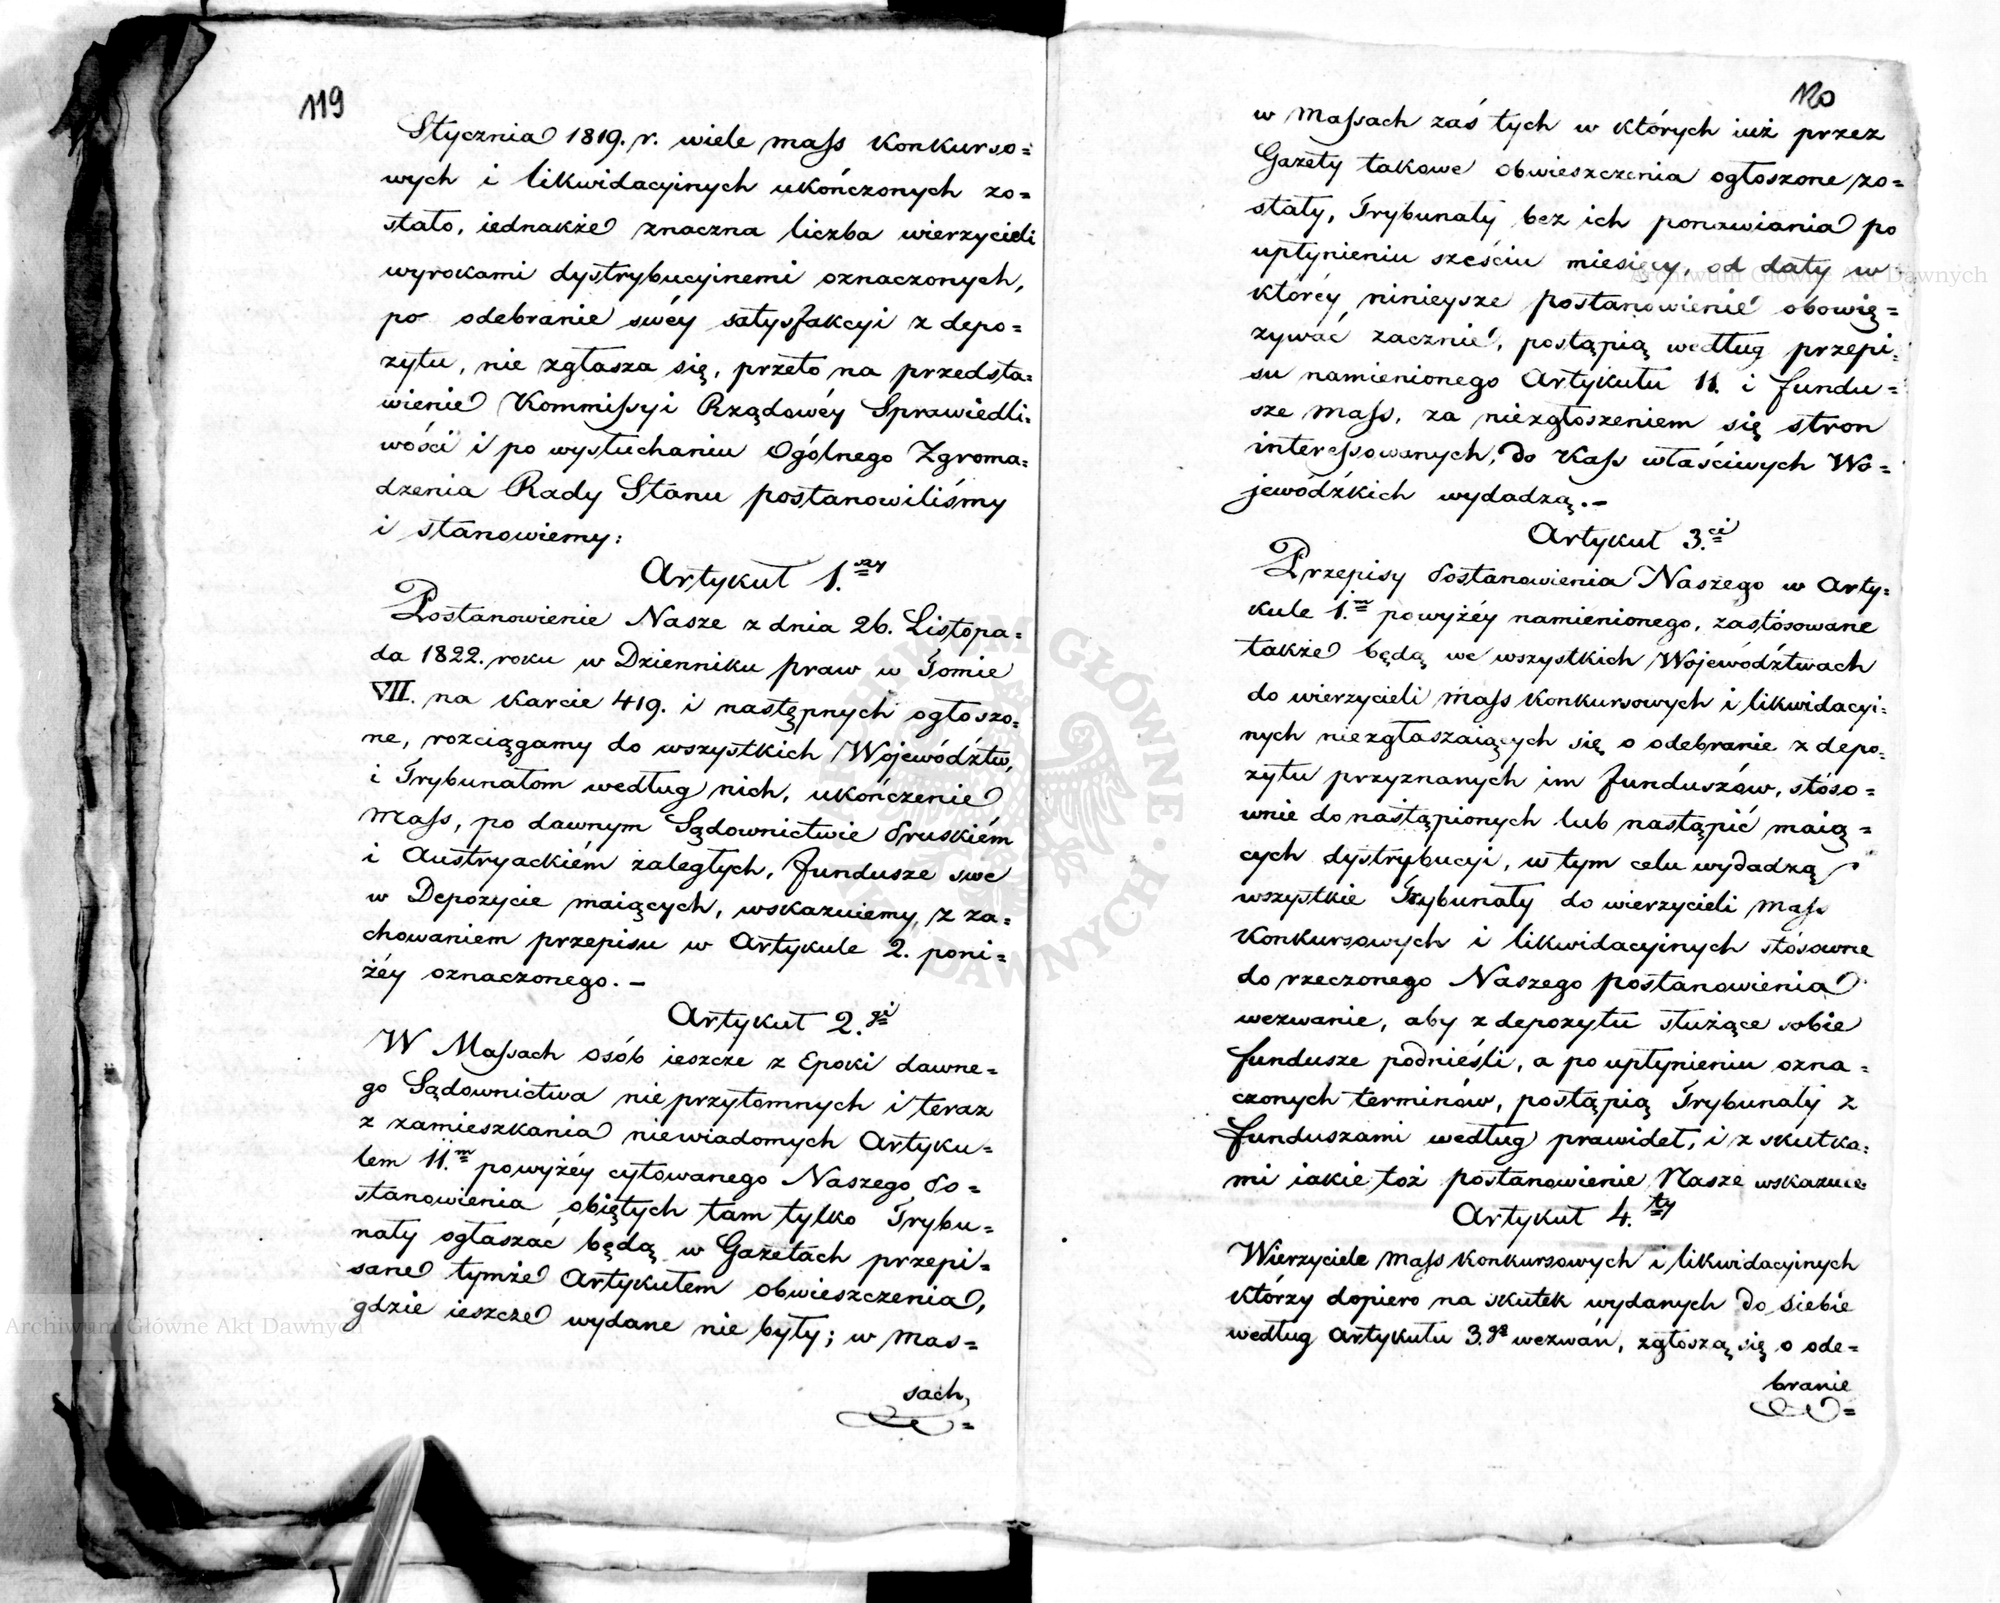 119
Stycznia 1819. r. wiele mass konkurso=
wych i likwidacyinych ukończonych zo=
stało, iednakże znaczna liczba wierzycieli
wyrokami dystrybucyinemi oznaczonych,
po odebranie swéy satysfakcyi z depo=
zytu, nie zgłasza się, przeto na przedsta=
wienie Kommissyi Rządowéy Sprawiedli=
wości i po wysłuchaniu Ogólnego Zgroma=
dzenia Rady Stanu postanowiliśmy
i stanowiemy:
Artykuł 1.szy
Postanowienie Nasze z dnia 26. Listopa=
da 1822. roku w Dzienniku praw w Tomie
VII. na karcie 419. i następnych ogłoszo=
ne, rozciągamy do wszystkich Województw,
i Trybunałom według nich, ukończenie
mass, po dawnym Sądownictwie Pruskiém
i Austryackiém zaległych, fundusze swe
w Depozycie maiących, wskazuiemy, z za=
chowaniem przepisu w Artykule 2. poni=
żéy oznaczonego. –
Artykuł 2.gi
W Massach osób ieszcze z Epoki dawne=
go Sądownictwa nieprzytomnych i teraz
z zamieszkania niewiadomych Artyku=
łem 11.m powyżéy cytowanego Naszego Po=
stanowienia obiętych tam tylko Trybu=
nały ogłaszać będą w Gazetach przepi=
sane tymże Artykułem obwieszczenia,
gdzie ieszcze wydane nie były; w mas=
sach,
120
w massach zaś tych w których iuż przez
Gazety takowe obwieszczenia ogłoszone zo=
stały, Trybunały bez ich ponawiania po
upłynieniu sześciu miesięcy, od daty w
któréy ninieysze postanowienie obowię=
zywać zacznie, postąpią według przepi=
su namienionego Artykułu 11. i fundu=
sze mass, za niezgłoszeniem się stron
interessowanych, do Kass właściwych Wo=
jewódzkich wydadzą. –
Artykuł 3.ci
Przepisy Postanowienia Naszego w Arty=
kule 1.m powyżéy namienionego, zastósowane
także będą we wszystkich Województwach
do wierzycieli mass konkursowych i likwidacyi=
nych niezgłaszaiących się o odebranie z depo=
zytu przyznanych im funduszów, stóso=
wnie do nastąpionych lub nastąpić maią=
cych dystrybucyi, w tym celu wydadzą
wszystkie Trybunały do wierzycieli mass
konkursowych i likwidacyinych stósowne
do rzeczonego Naszego postanowienia
wezwanie, aby z depozytu służące sobie
fundusze podnieśli, a po upłynieniu ozna=
czonych terminów, postąpią Trybunały z
funduszami według prawideł, i z skutka=
mi iakie toż postanowienie Nasze wskazuie
Artykuł 4.ty
Wierzyciele mass konkursowych i likwidacyinych
którzy dopiero na skutek wydanych do siebie
według Artykułu 3.go wezwań, zgłoszą się o ode=
branie
Archiwum Główne Akt Dawnych
Archiwum Główne Akt Dawnych
ARCHIWUM GŁÓWNE AKT DAWNYCH